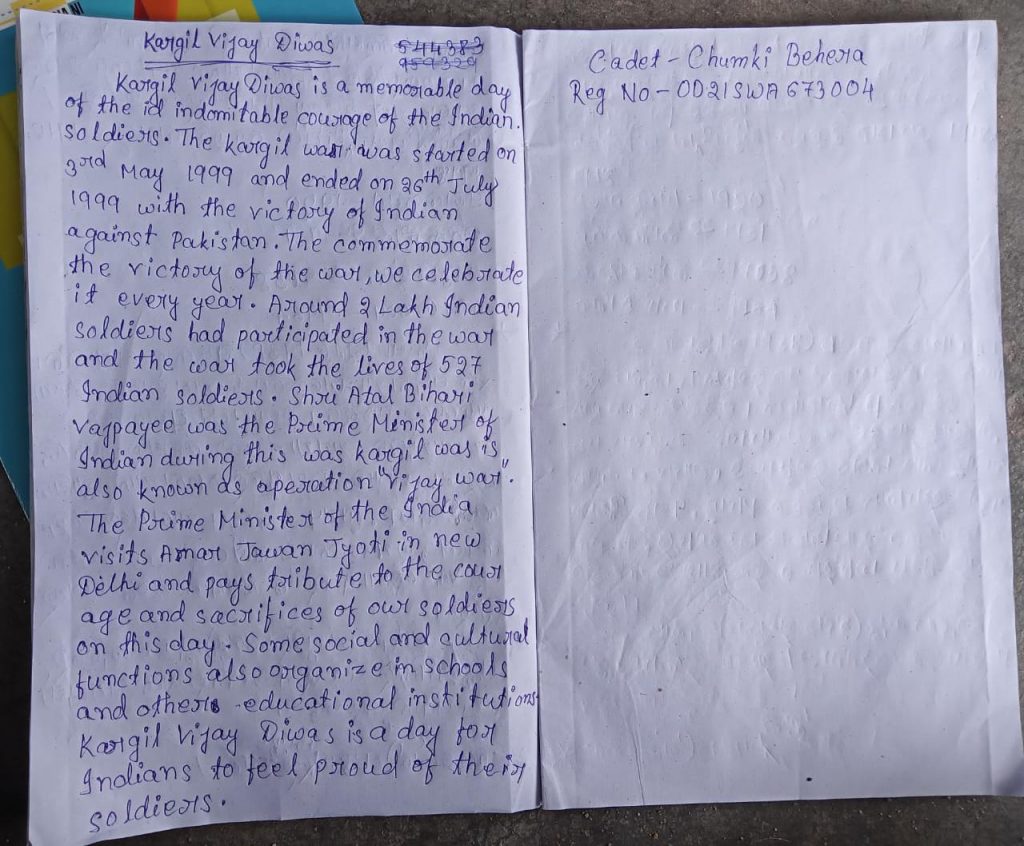 Kargil Vijay Diwas
544383
959329
Kargil Vijay Diwas is a memorable day
of the id indomitable courage of the Indian.
soldiers. The kargil war was started on
3rd May 1999 and ended on 26th July
1999 with the victory of Indian
against Pakistan. The commemorate
the victory of the war, we celebrate
it every year. Around 2 Lakh Indian
soldiers had participated in the war
and the war took the lives of 527
Indian soldiers. Shri Atal Bihari
Vajpayee was the Prime Minister of
Indian during this was kargil was is
also known as aperation "Vijay war".
The Prime Minister of the India
visits Amar Jawan Jyoti in new
Delhi and pays tribute to the cour
age and sacrifices of our soldiers
on this day. Some social and cultural
functions also organize in schools
and others educational institutions
Kargil Vijay Diwas is a day for
Indians to feel proud of their
soldiers.
Cadet - Chumki Behera
Reg No - OD21SWA673004